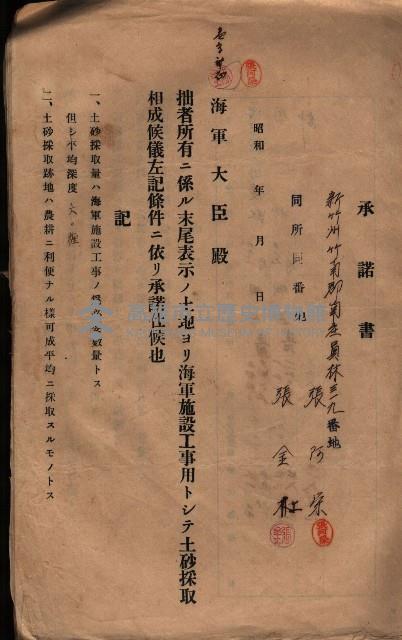 承諾書
新竹州竹南郡南庄員林三一九番地
張阿栄
同所同番地
張金
昭和 年 月 日
海軍大臣殿
拙者所有ニ係ル末尾表示ノ土地ヨリ海軍施設工事用トシテ土砂採取
相成候儀左記條件ニ依リ承諾仕候也
記
一、土砂採取量ハ海軍施設工事ノ所要数量トス
但シ平均深度
二、土砂採取跡地ハ農耕ニ利便ナル様可成平均ニ採取スルモノトス
高雄市立歷史博物館
KAOHSIUNG MUSEUM OF HISTORY